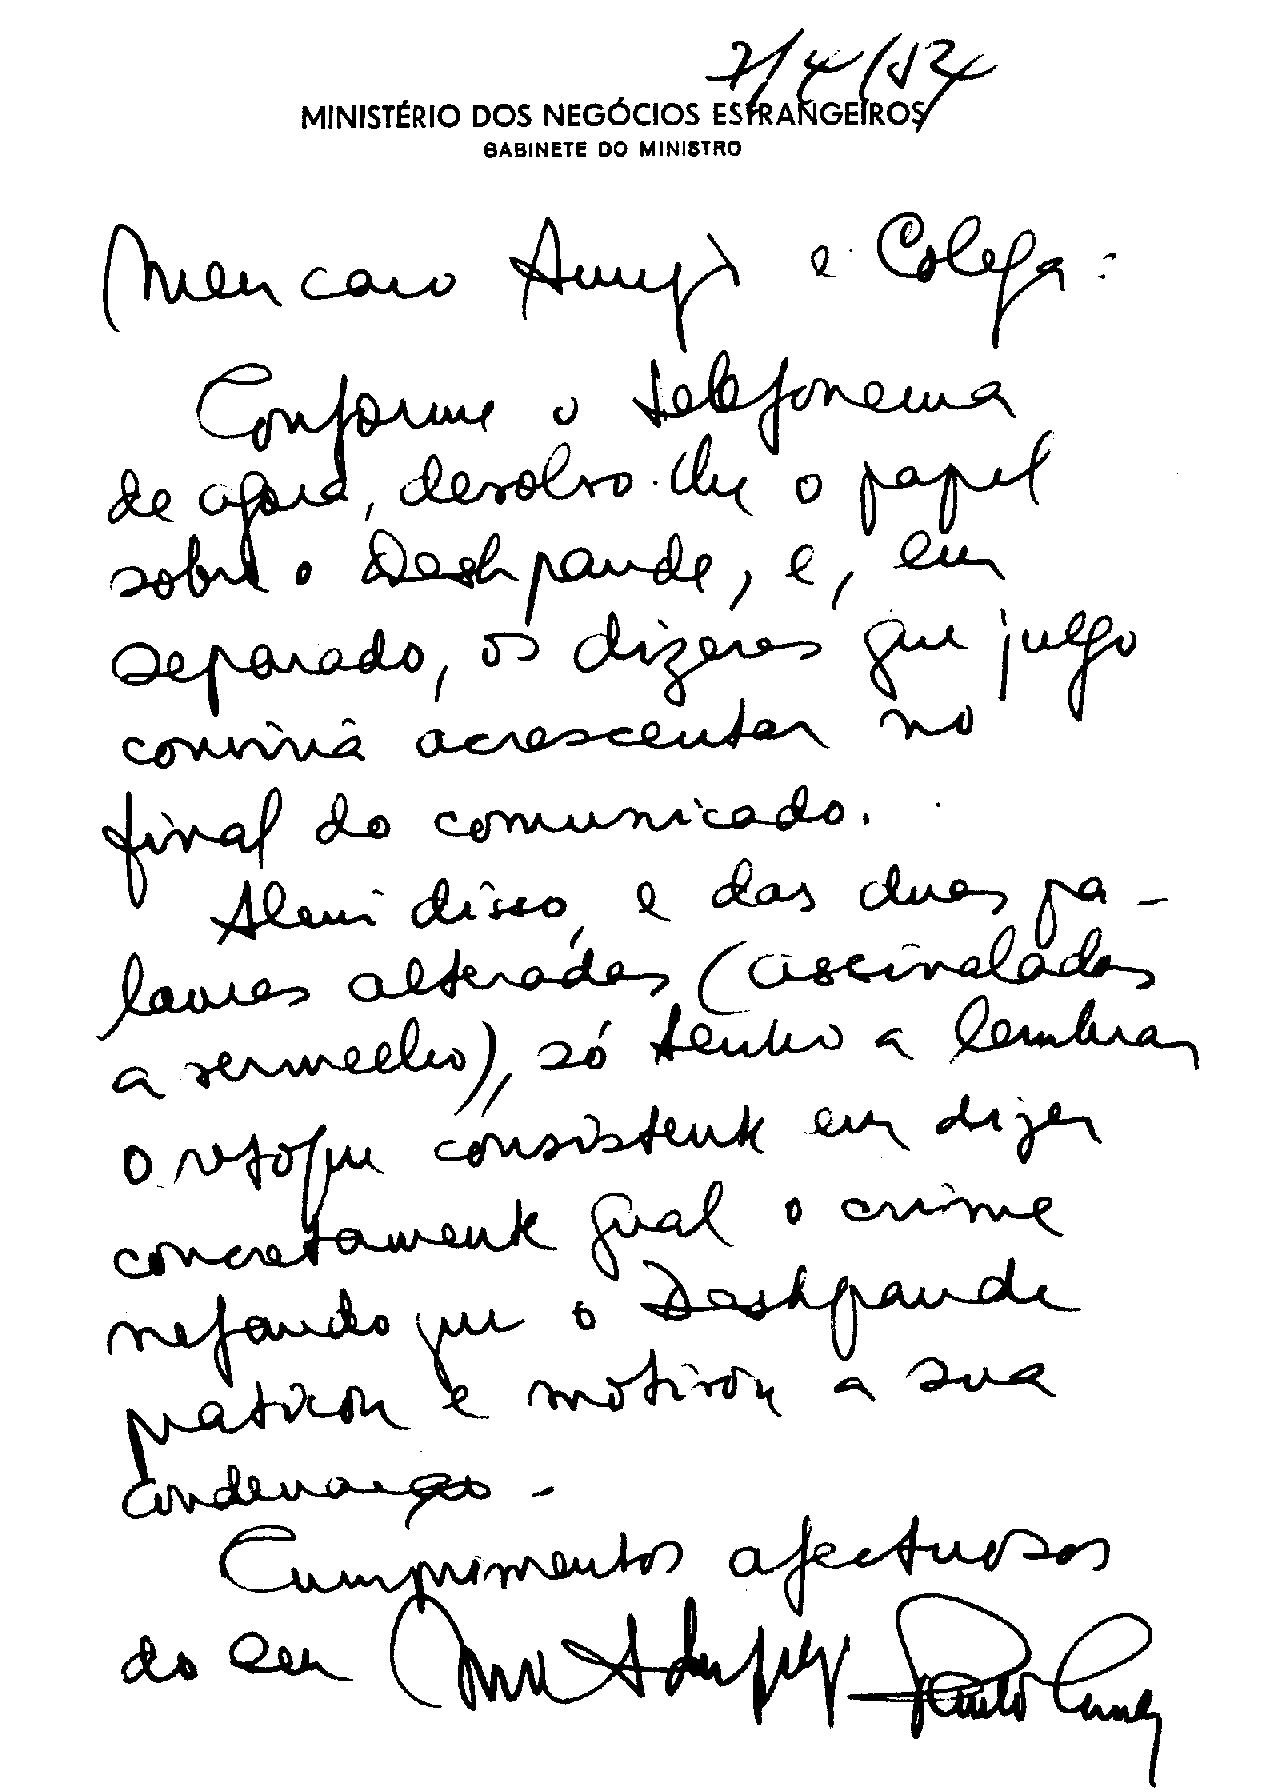 7/4/54
MINISTÉRIO DOS NEGÓCIOS ESTRANGEIROS
GABINETE DO MINISTRO
Meu caro Amigo e Colega:
Conforme o telefonema
de agora, devolvo-lhe o papel
sobre o Deshpande, e, em
separado, os dizeres que julgo
conviria acrescentar no
final do comunicado.
Alem disso, e das duas pa-
lavras alteradas (assinaladas
a vermelho), só tenho a lembrar
o retoque consistente em dizer
concretamente qual o crime
nefando que o Deshpande
praticou e motivou a sua
condenação -
Cumprimentos afectuosos
do seu Paulo Cunha